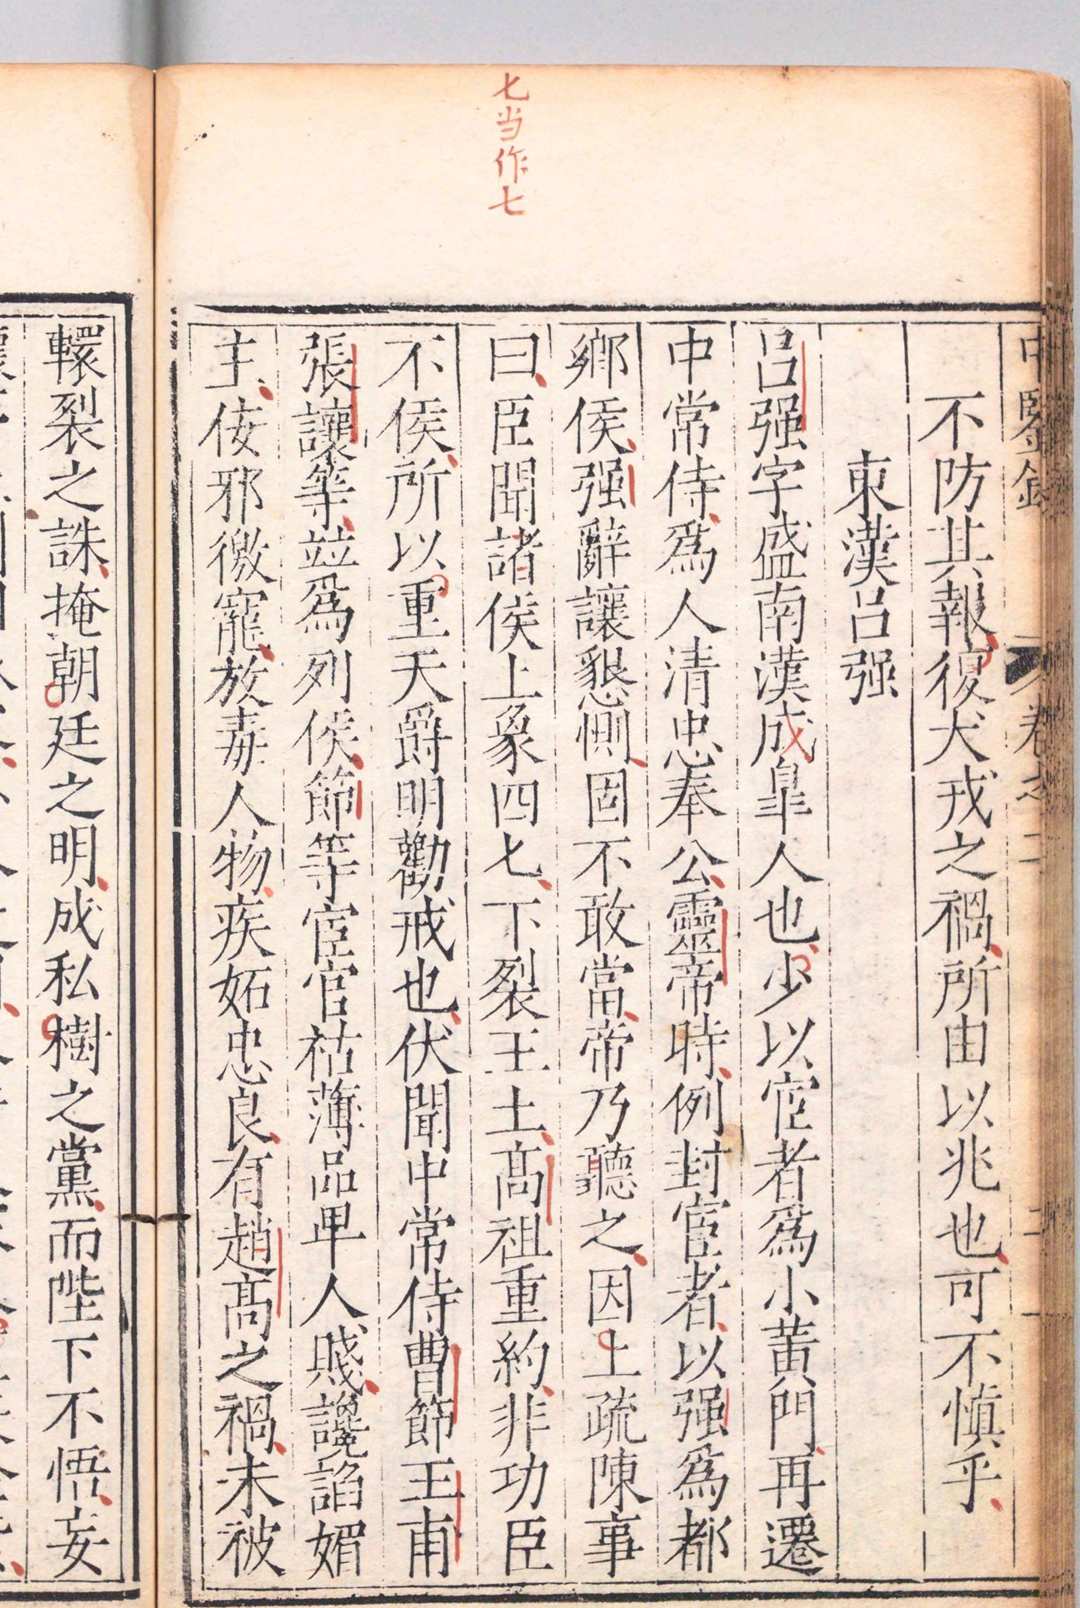 七当作七
中鑒錄
卷之二
不防其報復犬戎之禍所由以兆也可不慎乎
東漢呂强
呂强字盛南漢成臯人也少以宦者爲小黃門再遷
中常侍爲人清忠奉公靈帝時例封宦者以强爲都
鄉侯强辭讓懇惻固不敢當帝乃聽之因上疏陳事
曰臣聞諸侯上象四七下裂王土高祖重約非功臣
不侯所以重天爵明勸戒也伏聞中常侍曹節王甫
張讓等竝爲列侯節等宦官祜薄品卑人賤讒諂媚
主佞邪徼寵放毒人物疾妬忠良有趙高之禍未被
轘裂之誅掩朝廷之明成私樹之黨而陛下不悟妄